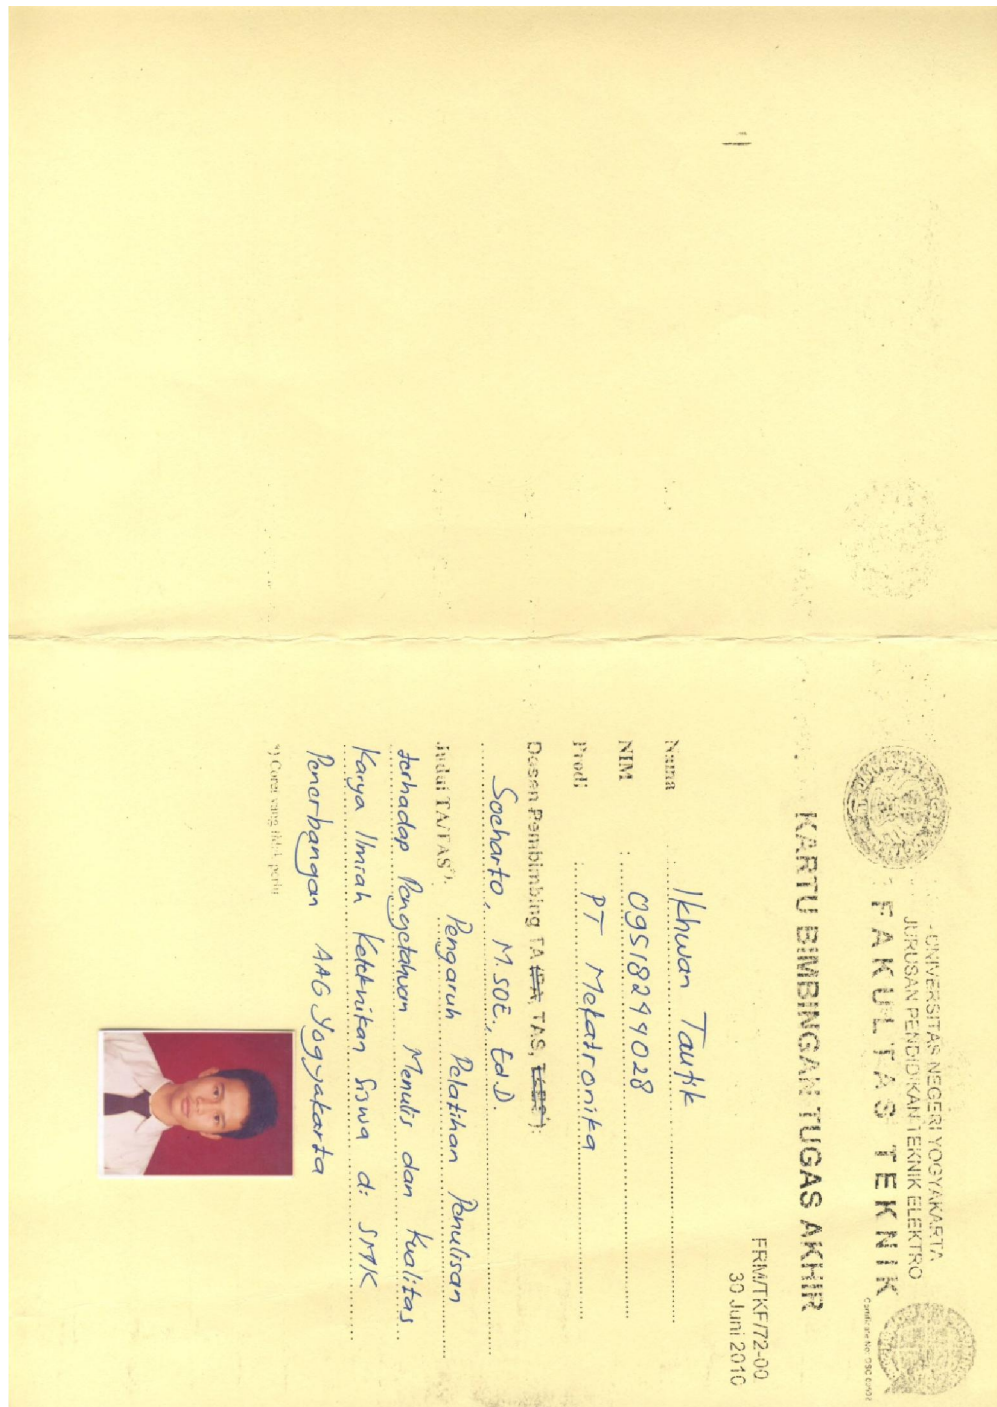 UNIVERSITAS NEGERI YOGYAKARTA
JURUSAN PENDIDIKAN TEKNIK ELEKTRO
FAKULTAS TEKNIK
KARTU BIMBINGAN TUGAS AKHIR
FRM/TKF/72-00
30 Juni 2010
Nama : Ikhwan Taufik
NIM : 09518299028
Prodi PT Mekatronika
Dosen Pembimbing TA (PA, TAS, TABS*):
Soeharto, M.SOE., Ed.D.
Judul TA/TAS*). Pengaruh Pelatihan Penulisan
terhadap Pengetahuan Menulis dan Kualitas
Karya Ilmiah Keteknikan Siswa di SMK
Penerbangan AAG Yogyakarta
*) Coret yang tidak perlu